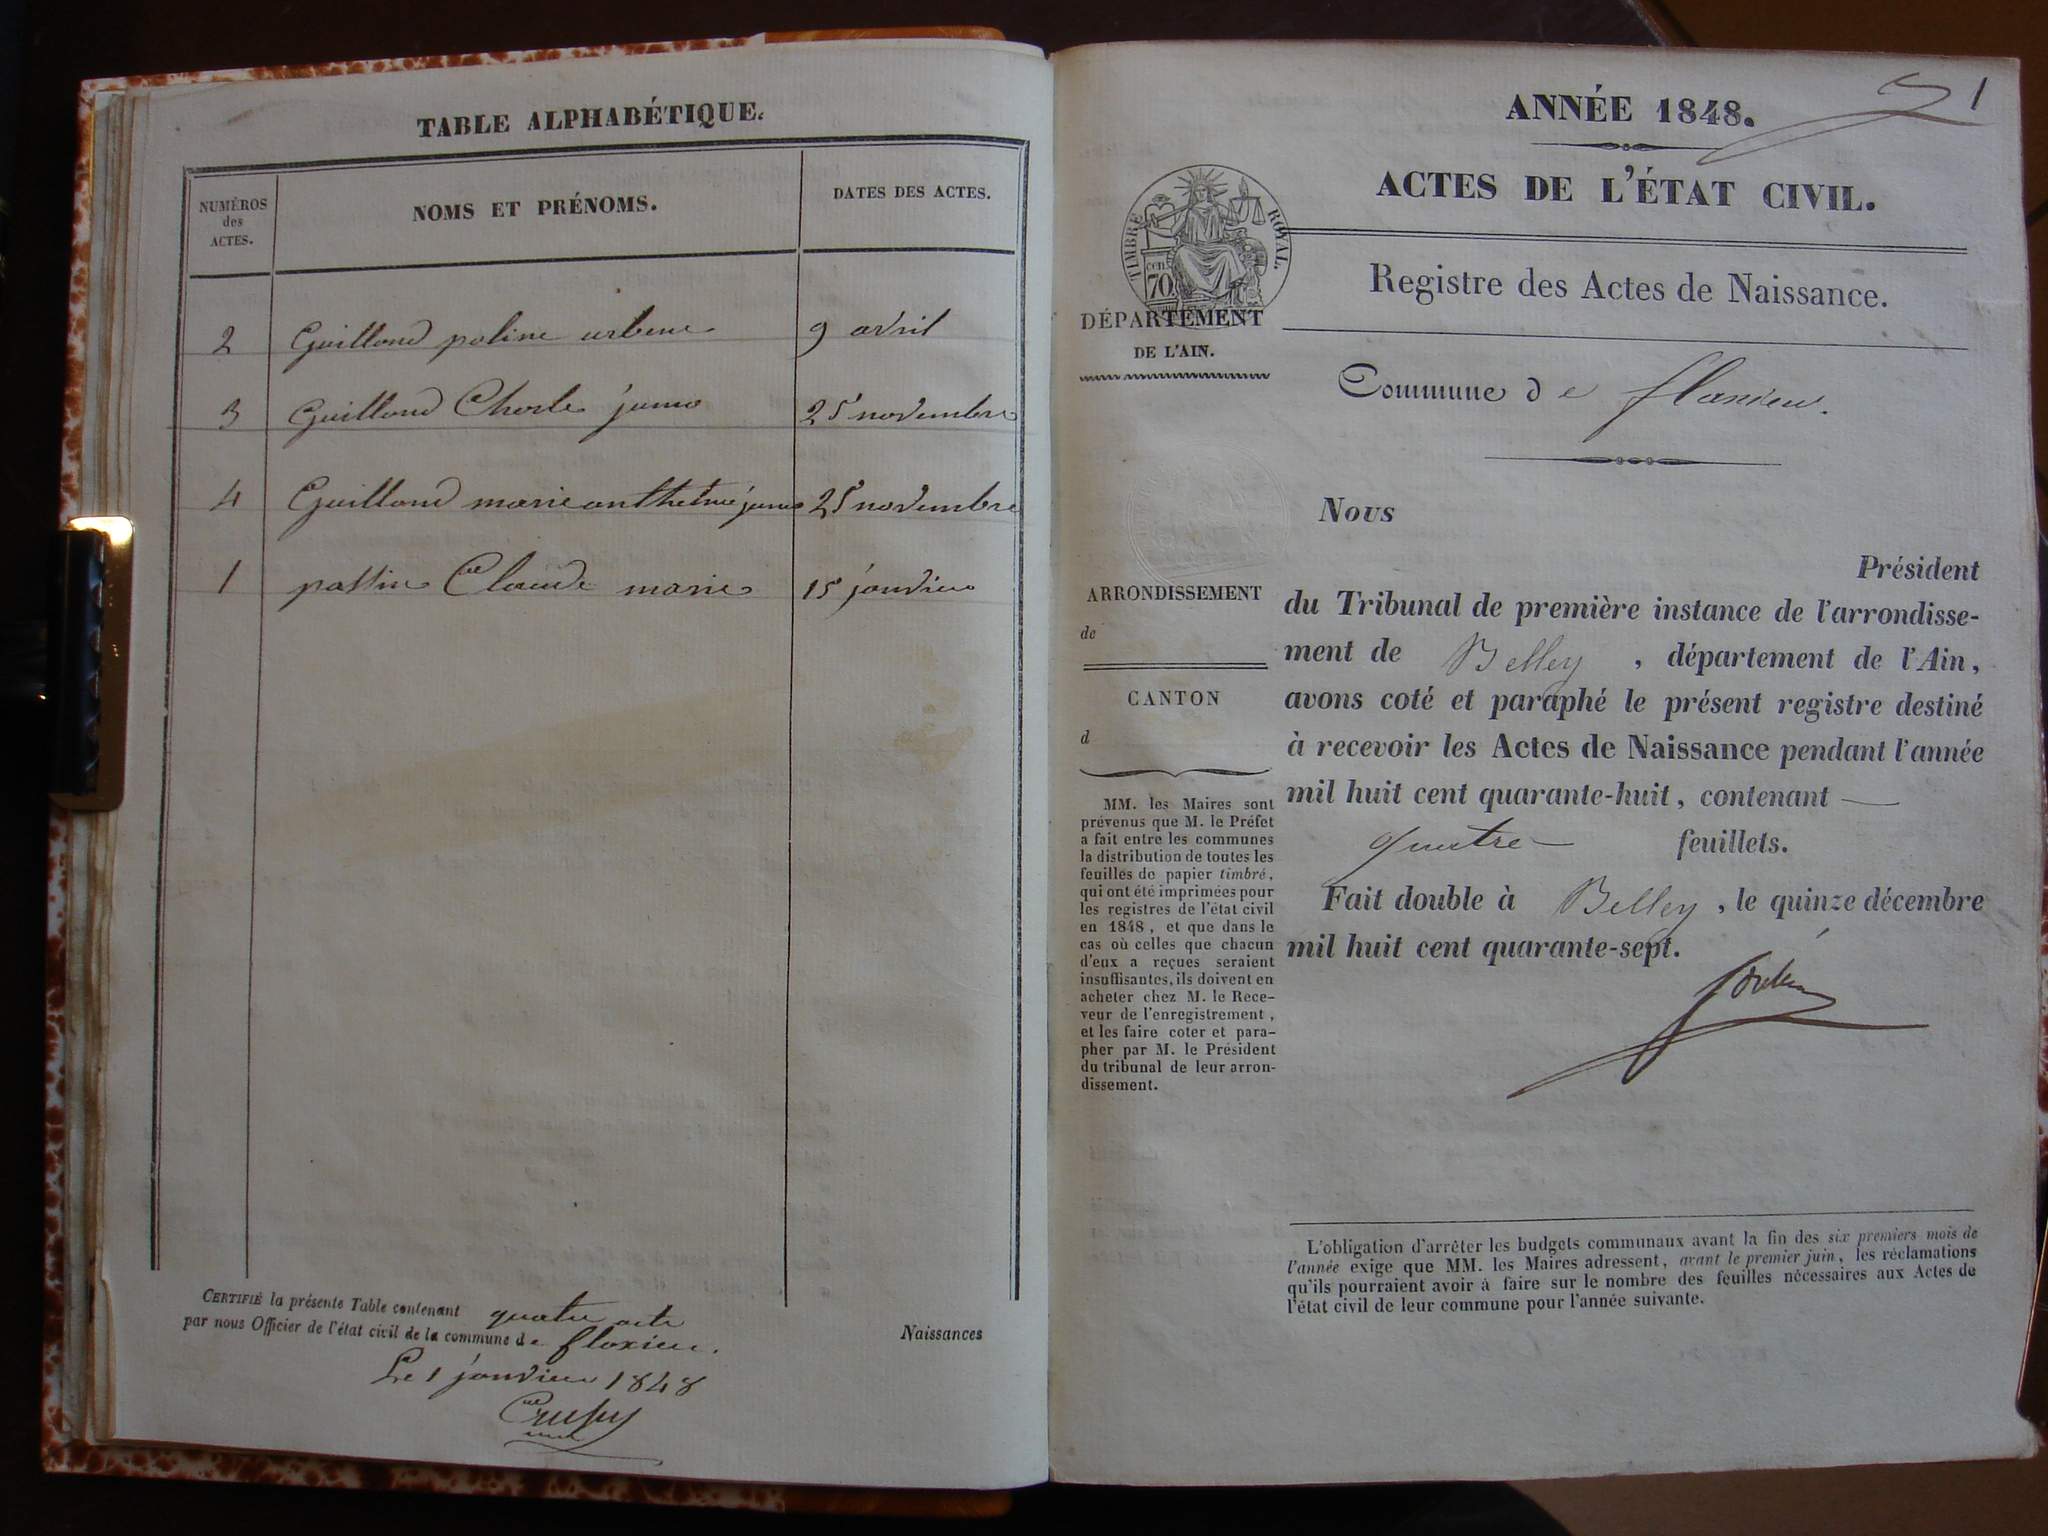 TABLE ALPHABÉTIQUE.
NUMÉROS
des
ACTES.
NOMS ET PRÉNOMS.
DATES DES ACTES.
2 Guilland poline 9 avril
3 Guilland Charle 25 novembre
4 Guilland marie 25 novembre
1 Claude marie 15 janvier
CERTIFIÉ la présente Table contenant quatre acte
par nous Officier de l'état civil de la commune de flaxieu.
Naissances
Le 1 janvier 1848
1
ANNÉE 1848.
ACTES DE L'ÉTAT CIVIL.
TIMBRE ROYAL.
cen. 70
Registre des Actes de Naissance.
DÉPARTEMENT
DE L'AIN.
Commune de flaxieu.
Nous
Président
du Tribunal de première instance de l'arrondisse-
ment de Belley, département de l'Ain,
avons coté et paraphé le présent registre destiné
à recevoir les Actes de Naissance pendant l'année
mil huit cent quarante-huit, contenant —
quatre — feuillets.
Fait double à Belley, le quinze décembre
mil huit cent quarante-sept.
ARRONDISSEMENT
de
CANTON
d
MM. les Maires sont
prévenus que M. le Préfet
a fait entre les communes
la distribution de toutes les
feuilles de papier timbré,
qui ont été imprimées pour
les registres de l'état civil
en 1848, et que dans le
cas où celles que chacun
d'eux a reçues seraient
insuffisantes, ils doivent en
acheter chez M. le Rece-
veur de l'enregistrement,
et les faire coter et para-
pher par M. le Président
du tribunal de leur arron-
dissement.
L'obligation d'arrêter les budgets communaux avant la fin des six premiers mois de
l'année exige que MM. les Maires adressent, avant le premier juin, les réclamations
qu'ils pourraient avoir à faire sur le nombre des feuilles nécessaires aux Actes de
l'état civil de leur commune pour l'année suivante.